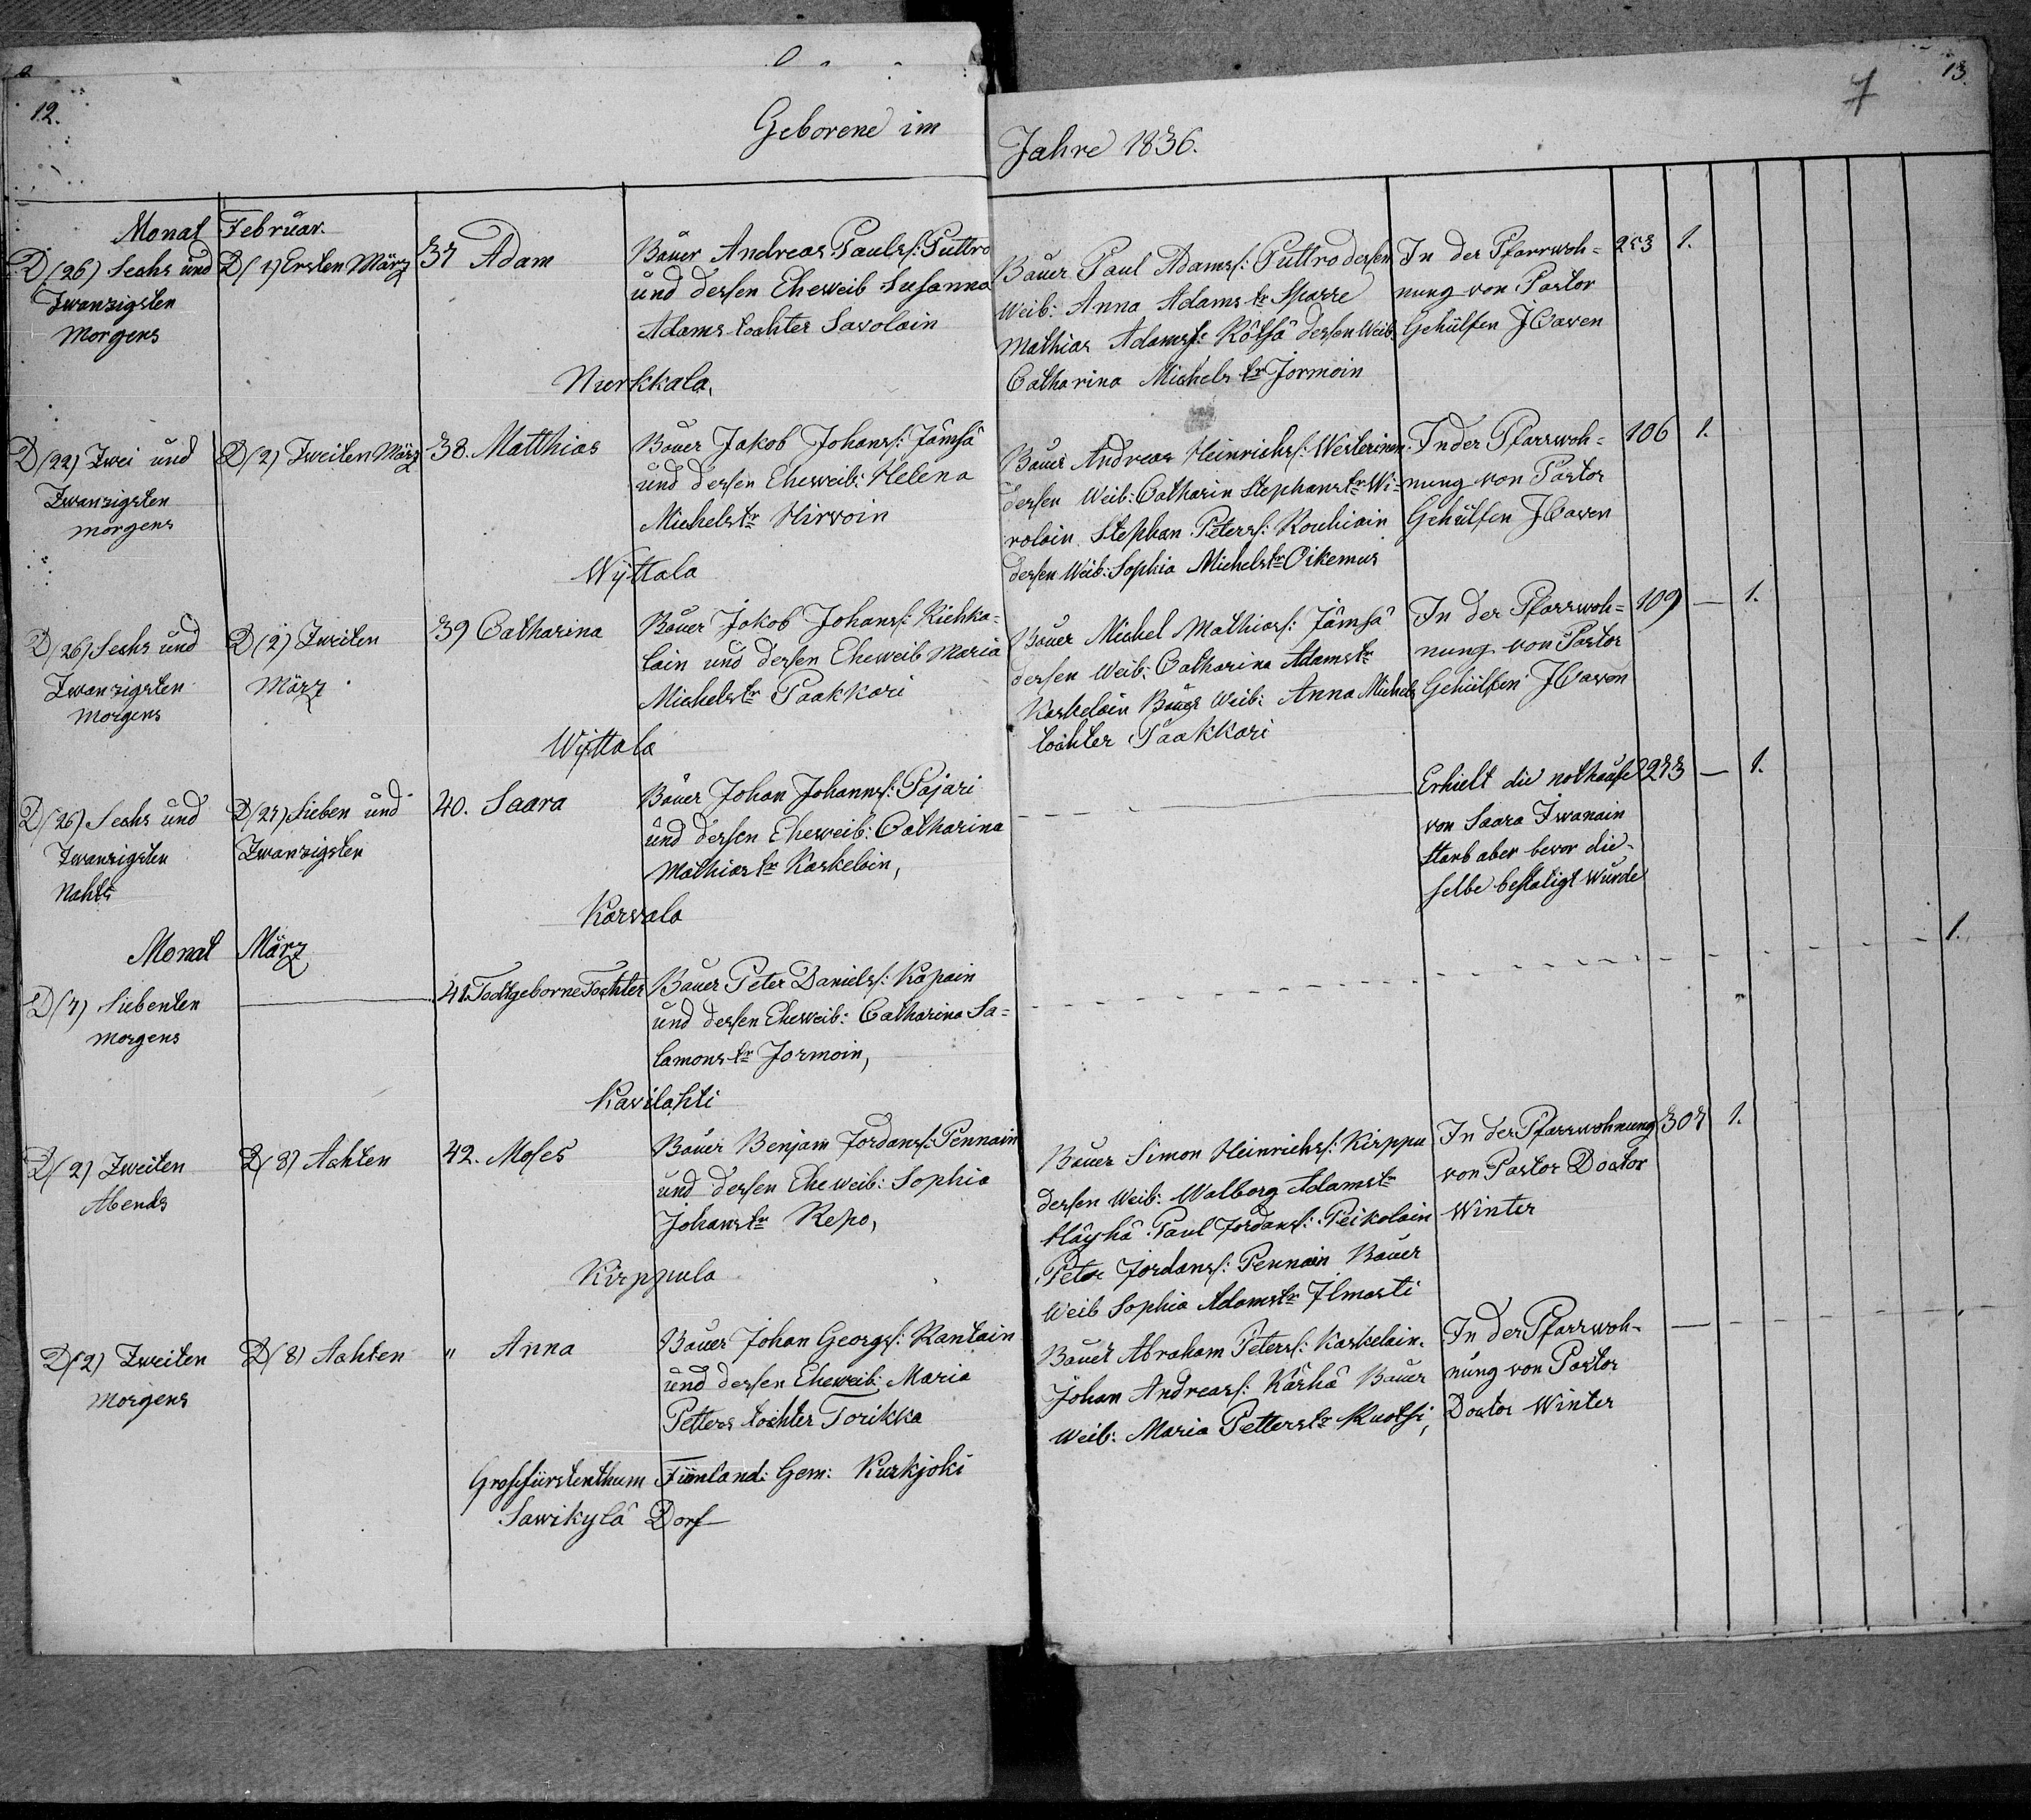 12.
Geborene im
Jahre 1836.
7
13.
Monat Februar.
D (26) Sechs und
Zwanzigsten
Morgens
D (1) Ersten März
37 Adam
Bauer Andreas Pauls s: Puttro
und dessen Eheweib Susanna
Adams tochter Savolain
Nurkkala,
Bauer Paul Adams s: Puttro dessen
Weib: Anna Adams tr Sparre
Mathias Adams s: Kötsä dessen Weib:
Catharina Michels tr Jormoin
In der Pfarrwoh=
nung von Pastor
Gehülfen J Caven
253 1.
D (22) Zwei und
Zwanzigsten
morgens
D (2) Zweiten März
38. Matthias
Bauer Jakob Johans s: Jämsä
und dessen Eheweib: Helena
Michels tr Hirvoin
Wyttala
Bauer Andreas Heinrichs s: Westerinen
dessen Weib: Catharin Stephans tr Wi=
rolain Stephan Peters s: Rouhiain
dessen Weib: Sophia Michels tr Oikemus
In der Pfarrwoh=
nung von Pastor
Gehülfen J Caven
106 1.
D (26) Sechs und
Zwanzigsten
Morgens
D (2) Zweiten
März
39 Catharina
Bauer Jakob Johans s: Kiehka=
lain und dessen Eheweib Maria
Michels tr Paakkari
Wyttala
Bauer Michel Mathias s: Jämsä
dessen Weib: Catharina Adams tr
Kaskelain Bauer Weib: Anna Michels
tochter Paakkari
In der Pfarrwoh=
nung von Pastor
Gehülfen J Caven
109 — 1.
D (26) Sechs und
Zwanzigsten
Nahts
D (27) Sieben und
Zwanzigsten
40. Saara
Bauer Johan Johanns s: Pajari
und dessen Eheweib: Catharina
Mathias tr Kaskelain,
Karvala
Erhielt die nothtaufe
von Saara Iwanain
starb aber bevor die-
selbe bestatigt wurde
273 — 1.
Monat März
D (7) Siebenten
morgens
41. Todtgeborne Tochter
Bauer Peter Daniels s: Kapain
und dessen Eheweib: Catharina Sa=
lamons tr Jormoin,
Kavilahti
1.
D (2) Zweiten
Abends
D (8) Achten
42. Moses
Bauer Benjam Jordans s: Pennain
und dessen Eheweib: Sophia
Johans tr Repo,
Kirppula
Bauer Simon Heinrichs s: Kirppu
dessen Weib: Walborg Adams tr
Häyhä Paul Jordans s: Peikolain
Peter Jordans s: Pennain Bauer
Weib Sophia Adams tr Ilmasti
In der Pfarrwohnung
von Pastor Doctor
Winter
307 1.
D (2) Zweiten
Morgens
D (8) Achten
" Anna
Bauer Johan Georgs s: Rantain
und dessen Eheweib: Maria
Petters tochter Torikka
Grosfürstenthum Finnland: Gem: Kurkjoki
Sawikylä Dorf
Bauer Abraham Peters s: Kaskelain.
Johan Andreas s: Kärhä Bauer
Weib: Maria Petters tr Ruotsi,
In der Pfarrwoh-
nung von Pastor
Doctor Winter